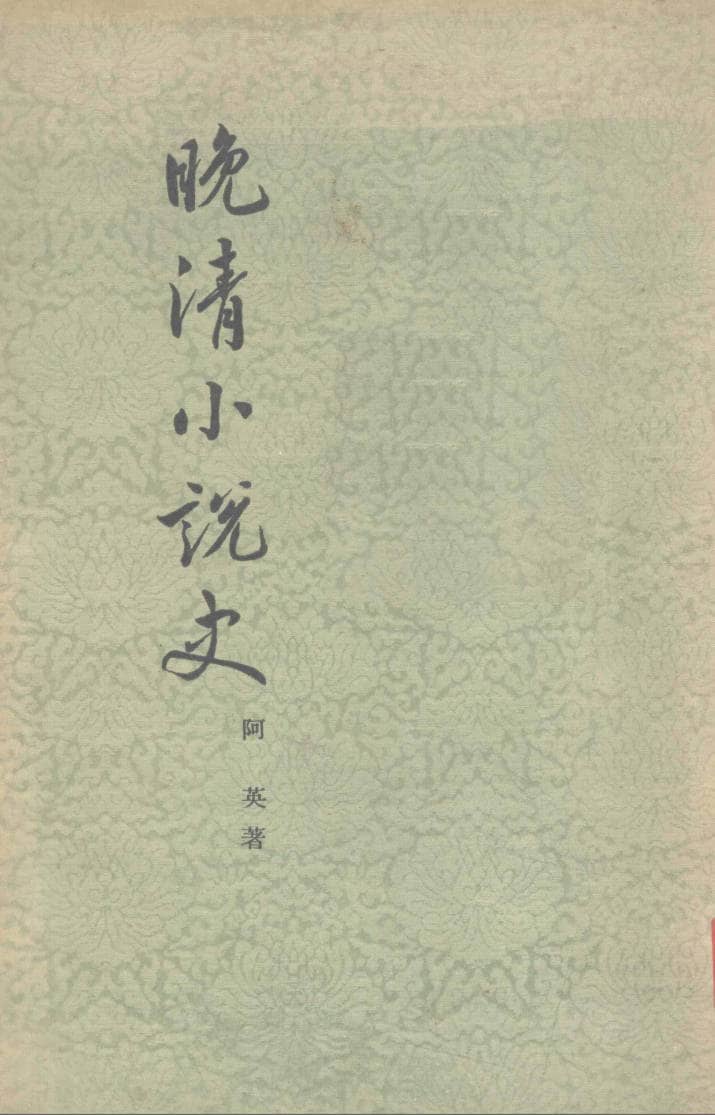 晚清小說史
阿英著